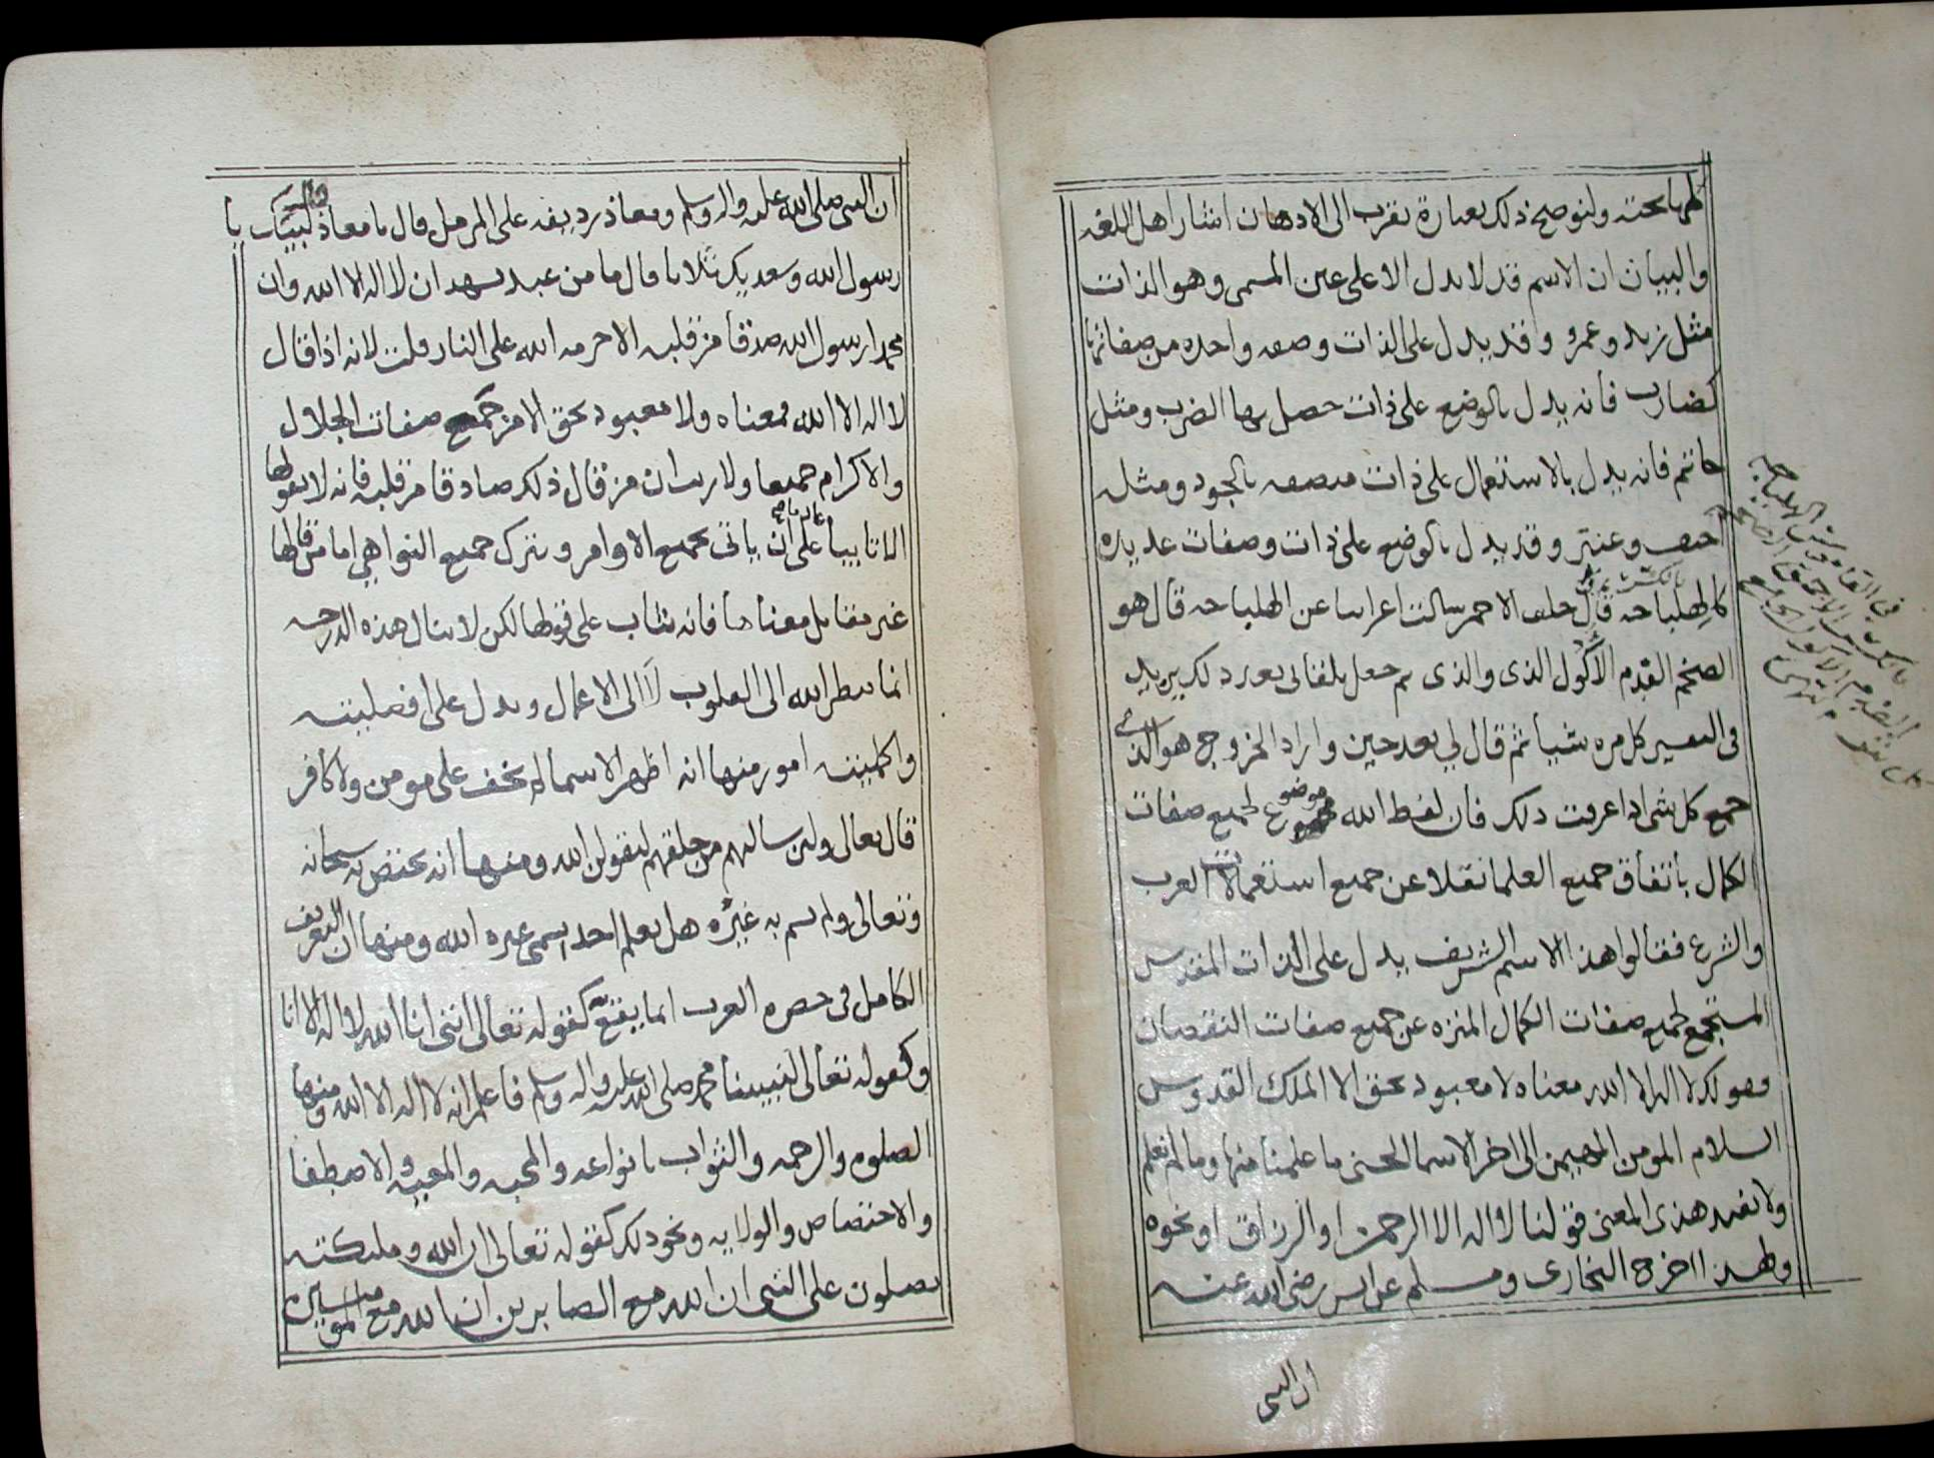 ولنوضح ذلك بعبارة تقرب الى الاذهان اشار اهل اللغه
والبيان ان الاسم قد لا يدل الا على عين المسمى وهو الذات
مثل زيد وعمرو وقد يدل على الذات وصفه واحده من صفاتها
كضارب فانه يدل بالوضع على ذات حصل بها الضرب ومثل
حاتم فانه يدل بالاستعمال على ذات متصفه بالجود ومثله
احنف وعنتر وقد يدل بالوضع على ذات وصفات عديده
كالهلباجه قال خلف الاحمر سالت اعرابيا عن الهلباجه قال هو
الضخم القدم الاكول الذى والذى ثم جعل يلقانى بعد ذلك يزيد
فى التفسير كل مره شيأ ثم قال لي بعد حين واراد الخروج هو الذي
جمع كل شى اذا عرفت ذلك فان لفظ الله موضوع لجميع صفات
الكمال باتفاق جميع العلما نقلا عن جميع استعمالات العرب
والشرع فقالوا هذا الاسم الشريف يدل على الذات المقدس
المستجمع لجميع صفات الكمال المنزه عن جميع صفات النقصان
فقولك لا اله الا الله معناه لا معبود بحق الا الملك القدوس
السلام المومن المهيمن الى اخر الاسما الحسنى ما علمنا منها وما لم نعلم
ولا يفيد هذى المعنى قولنا لا اله الا الرحمن او الرزاق او نحوه
ولهذا اخرج البخارى ومسلم عن انس رضى الله عنه
ان النبى
ان النبى صلى الله عليه واله وسلم ومعاذ رديفه على الرحل قال يا معاذ قال لبيك يا
رسول الله وسعديك ثلاثا قال ما من عبد يشهد ان لا اله الا الله وان
محمدا رسول الله صدقا من قلبه الا حرمه الله على النار قلت لانه اذا قال
لا اله الا الله فمعناه ولا معبود بحق الا من جمع صفات الجلال
والاكرام جميعا ولا ريب ان من قال ذلك صادقا من قلبه فانه لا يقولها
الا تايبا عازما على ان ياتى بجميع الاوامر ويترك جميع النواهي اما من قالها
غير مقابل معناها فانه يثاب على قولها لكن لا ينال هذه الدرجه
انما ينظر الله الى القلوب لا الى الاعمال ويدل على افضليته
واكمليته امور منها انه اظهر الاسما لم يخف على مومن ولا كافر
قال تعالى ولئن سالتهم من خلقهم ليقولن الله ومنها انه يختص به سبحانه
وتعالى ولم يسم به غيره هل يعلم احد يسمى غيره الله ومنها ان التعريف
الكامل فى حصره العرب انما يقع به كقوله تعالى اننى انا الله لا اله الا انا
وكقوله تعالى لنبينا محمد صلى الله عليه واله وسلم فاعلم انه لا اله الا الله ومنها
الصلوه والرحمه والثواب بانواعه والمحبه والمعيه والاصطفا
والاختصاص والولايه ونحو ذلك كقوله تعالى ان الله وملئكته
يصلون على النبى ان الله مع الصابرين ان الله مع